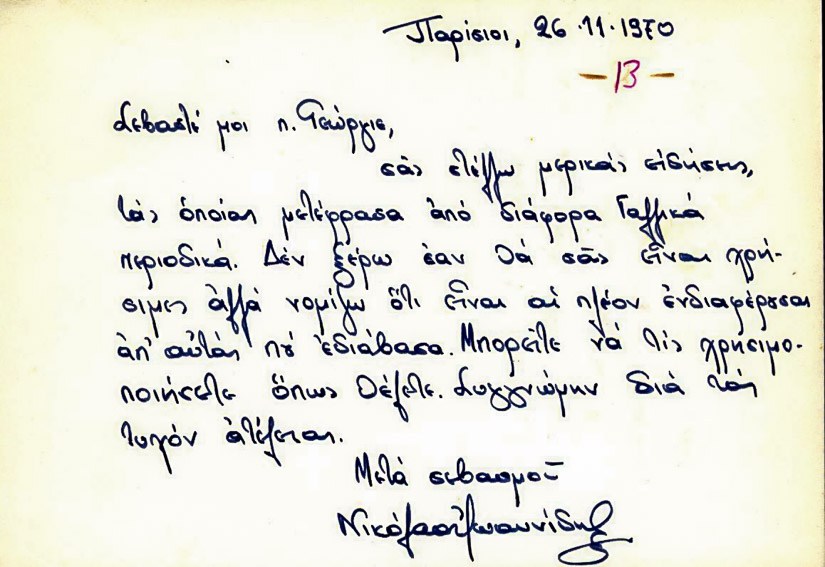 Παρίσιοι, 26.11.1970
—13—
Σεβαστέ μοι π. Γεώργιε,
σᾶς στέλλω μερικάς εἰδήσεις,
τάς ὁποίας μετέφρασα ἀπό διάφορα Γαλλικά
περιοδικά. Δέν ξέρω ἐάν θά σᾶς εἶναι χρή-
σιμες ἀλλά νομίζω ὅτι εἶναι αἱ πλέον ἐνδιαφέρουσαι
ἀπ' αὐτάς πού ἐδιάβασα. Μπορεῖτε νά τίς χρησιμο-
ποιήσετε ὅπως θέλετε. Συγγνώμην διά τάς
τυχόν ἀτέλειας.
Μετά σεβασμοῦ
Νικόλαος Ἰωαννίδης